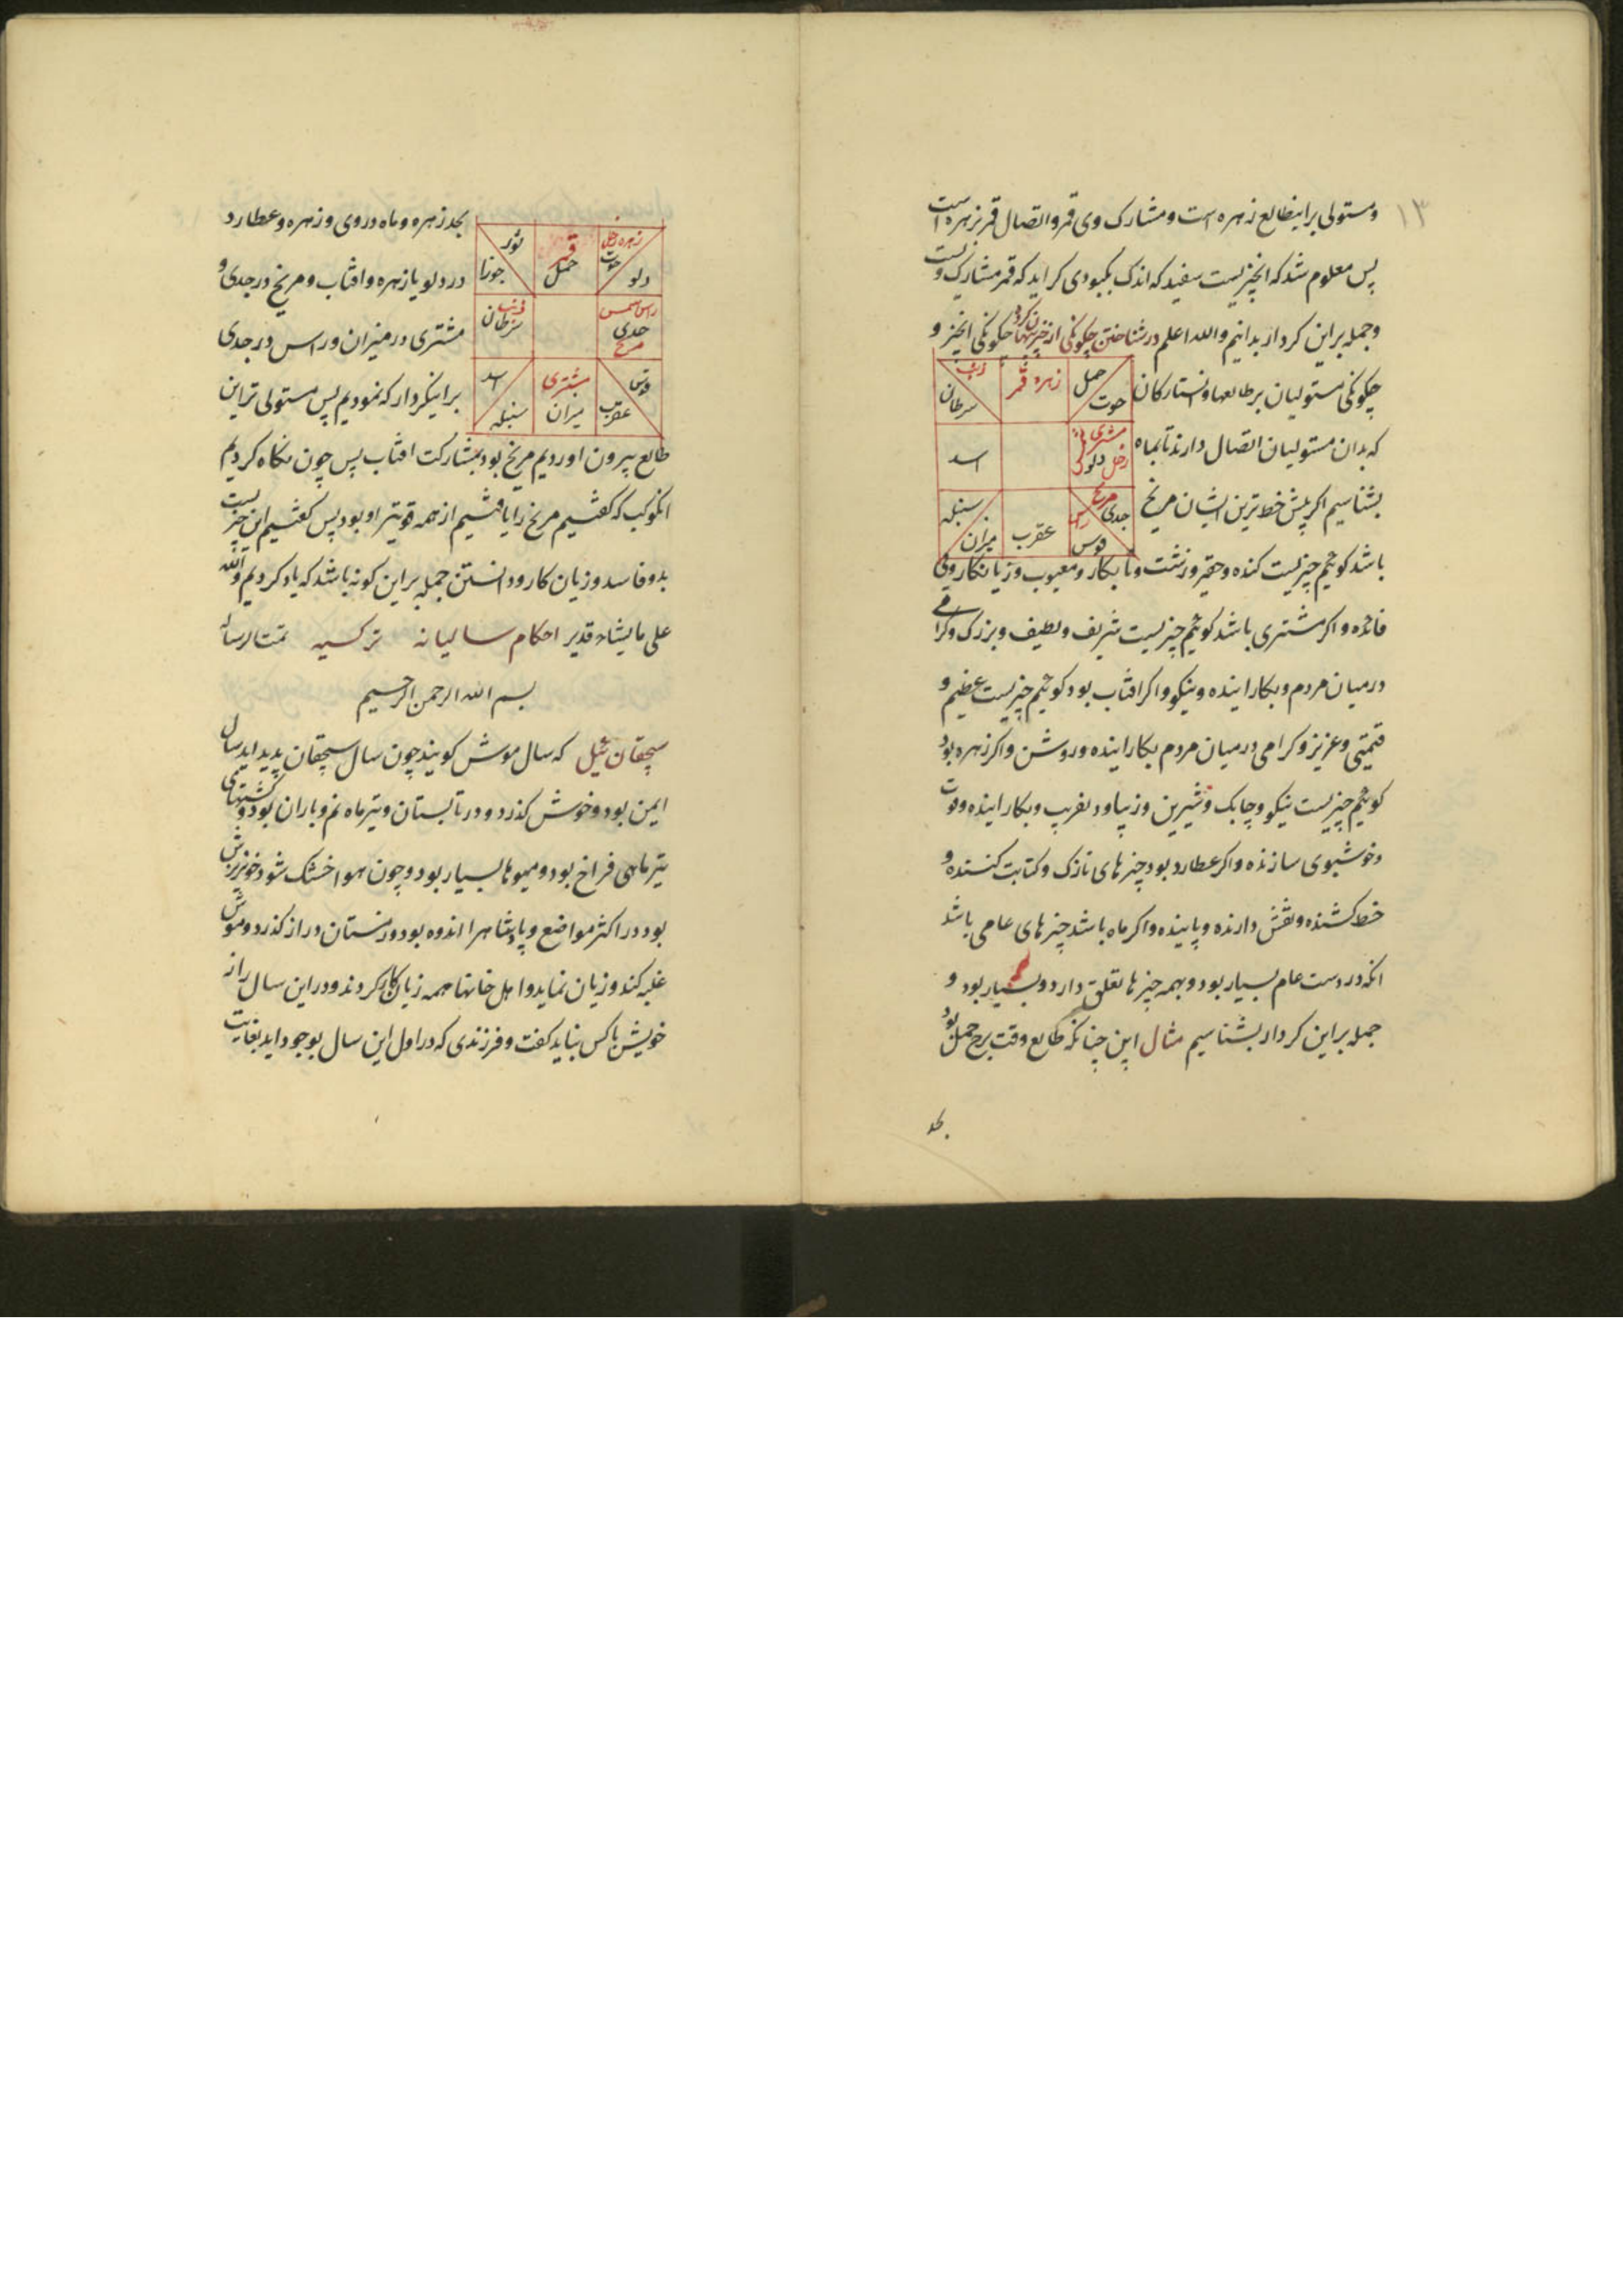 ۱۳
ومستولی براینطالع زهره است ومشارک وی قمر واتصال قمر بزهره است
پس معلوم شد که انچیزیست سفید که اندک بکبودی کراید که قمر مشارک ویست
وجمله براین کردار بدانیم والله اعلم در شناختن چکونکی از خیز پنهان کرد چکونکی انخیز و
چکونکی مستولیان بر طالعها وستارکان
حمل
حوت
زهره قمر
ذنب
سرطان
که بدان مستولیان اتصال دارند تا بماه
مشتری
زحل دلو
اسد
بشناسیم اکر پیش خط ترین ایشان مریخ
جدی
قوس
عقرب
سنبله
میزان
باشد کوئیم چیزیست کنده وحقیر وزشت ونابکار ومعیوب وزیانکار وبی
فائده واکر مشتری باشد کوئیم چیزیست شریف ولطیف وبزرک وکرامی
درمیان مردم وبکار اینده ونیکو واکر افتاب بود کوئیم چیزیست عظیم و
قیمتی وعزیز وکرامی درمیان مردم بکار اینده وروشن واکر زهره بود
کوئیم چیزیست نیکو وچابک وشیرین وزیبا ودلفریب وبکار اینده وقوت
وخوشبوی سازنده واکر عطارد بود چیزهای نازک وکتابت کننده و
خط کشنده ونقش دارنده وپاینده واکر ماه باشد چیزهای عامی باشد
انکه در دست عام بسیار بود وبهمه چیزها تعلق دارد وبسیار بود و
جمله براین کردار بشناسیم مثال این چنانکه طالع وقت برج حمل بود
بحد
بحد زهره وماه در وی وزهره وعطارد
زهره زحل
حوت
دلو
قمر
حمل
ثور
جوزا
در دلو یا زهره وافتاب ومریخ در جدی و
راس شمس
جدی
مریخ
ذنب
سرطان
مشتری در میزان وراس در جدی
قوس
عقرب
مشتری
میزان
اسد
سنبله
براینکردار که نمودیم پس مستولی تراین
طالع بیرون اوردیم مریخ بود بمشارکت افتاب پس چون نکاه کردیم
انکوکب که کفتیم مریخ را یافتیم از همه قویتر او بود پس کفتیم این چیزیست
بد وفاسد وزیان کار ودانستن جمله براین کونه باشد که یاد کردیم والله
علی مایشاء قدیر احکام سالیانه ترکسیه تمت الرساله
بسم الله الرحمن الرحیم
سیچقان ئیل که سال موش کویند چون سال سیچقان پدید اید سال
ایمن بود وخوش کذرد ودر تابستان وتیر ماه نم وباران بود وکشتهای
تیر ماهی فراخ بود ومیوها بسیار بود وچون هوا خشک شود خونریزش
بود در اکثر مواضع وپادشاهرا اندوه بود وزمستان دراز کذرد وموش
غلبه کند وزیان نماید واهل خانها همه زیان کار کردند ودر این سال راز
خویش باکس نباید کفت وفرزندی که در اول این سال بوجود اید بغایت